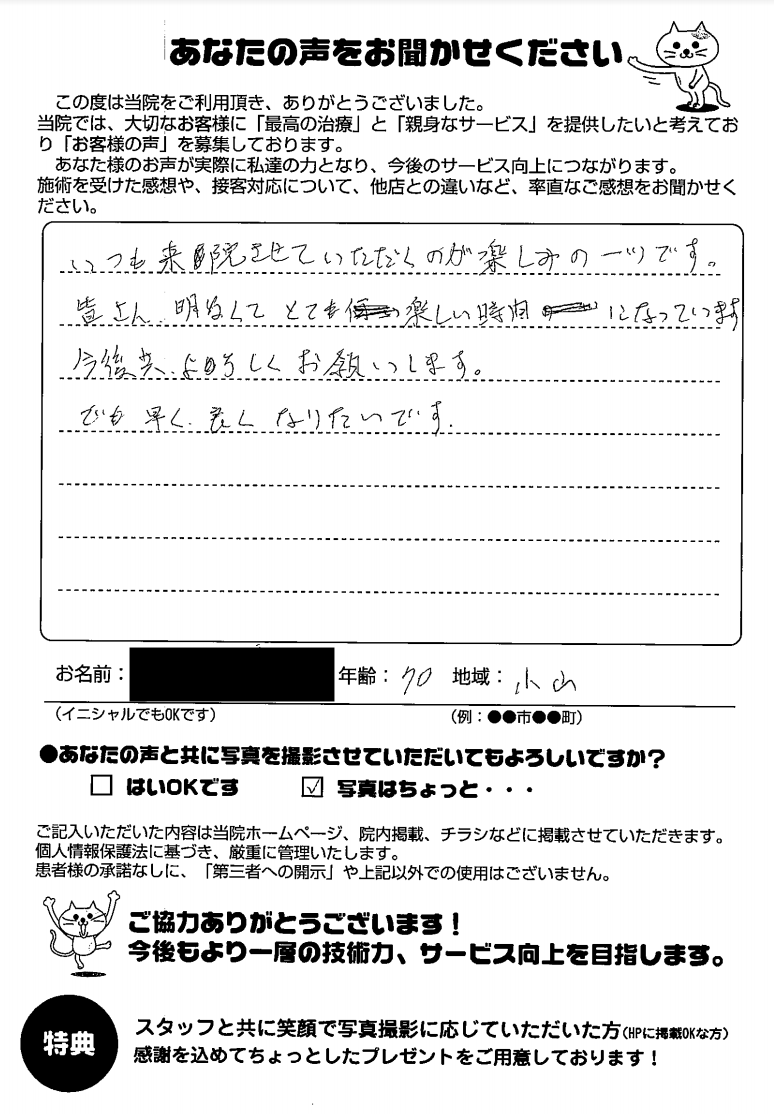 あなたの声をお聞かせください
この度は当院をご利用頂き、ありがとうございました。
当院では、大切なお客様に「最高の治療」と「親身なサービス」を提供したいと考えてお
り「お客様の声」を募集しております。
あなた様のお声が実際に私達の力となり、今後のサービス向上につながります。
施術を受けた感想や、接客対応について、他店との違いなど、率直なご感想をお聞かせく
ださい。
いつも来院させていただくのが楽しみの一ツです。
皆さん、明るくてとても楽しい時間になっています
今後共、よろしくお願いします。
でも早く、良くなりたいです.
お名前：
年齢：70
地域：小山
（イニシャルでもOKです）
（例：●●市●●町）
●あなたの声と共に写真を撮影させていただいてもよろしいですか？
□ はいOKです ☑ 写真はちょっと・・・
ご記入いただいた内容は当院ホームページ、院内掲載、チラシなどに掲載させていただきます。
個人情報保護法に基づき、厳重に管理いたします。
患者様の承諾なしに、「第三者への開示」や上記以外での使用はございません。
ご協力ありがとうございます！
今後もより一層の技術力、サービス向上を目指します。
特典
スタッフと共に笑顔で写真撮影に応じていただいた方（HPに掲載OKな方）
感謝を込めてちょっとしたプレゼントをご用意しております！